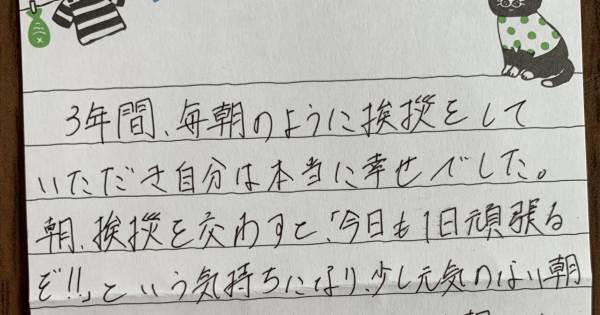 3年間、毎朝のように挨拶をして
いただき自分は本当に幸せでした。
朝、挨拶を交わすと、「今日も1日頑張る
ぞ!!」という気持ちになり、少し元気のない朝